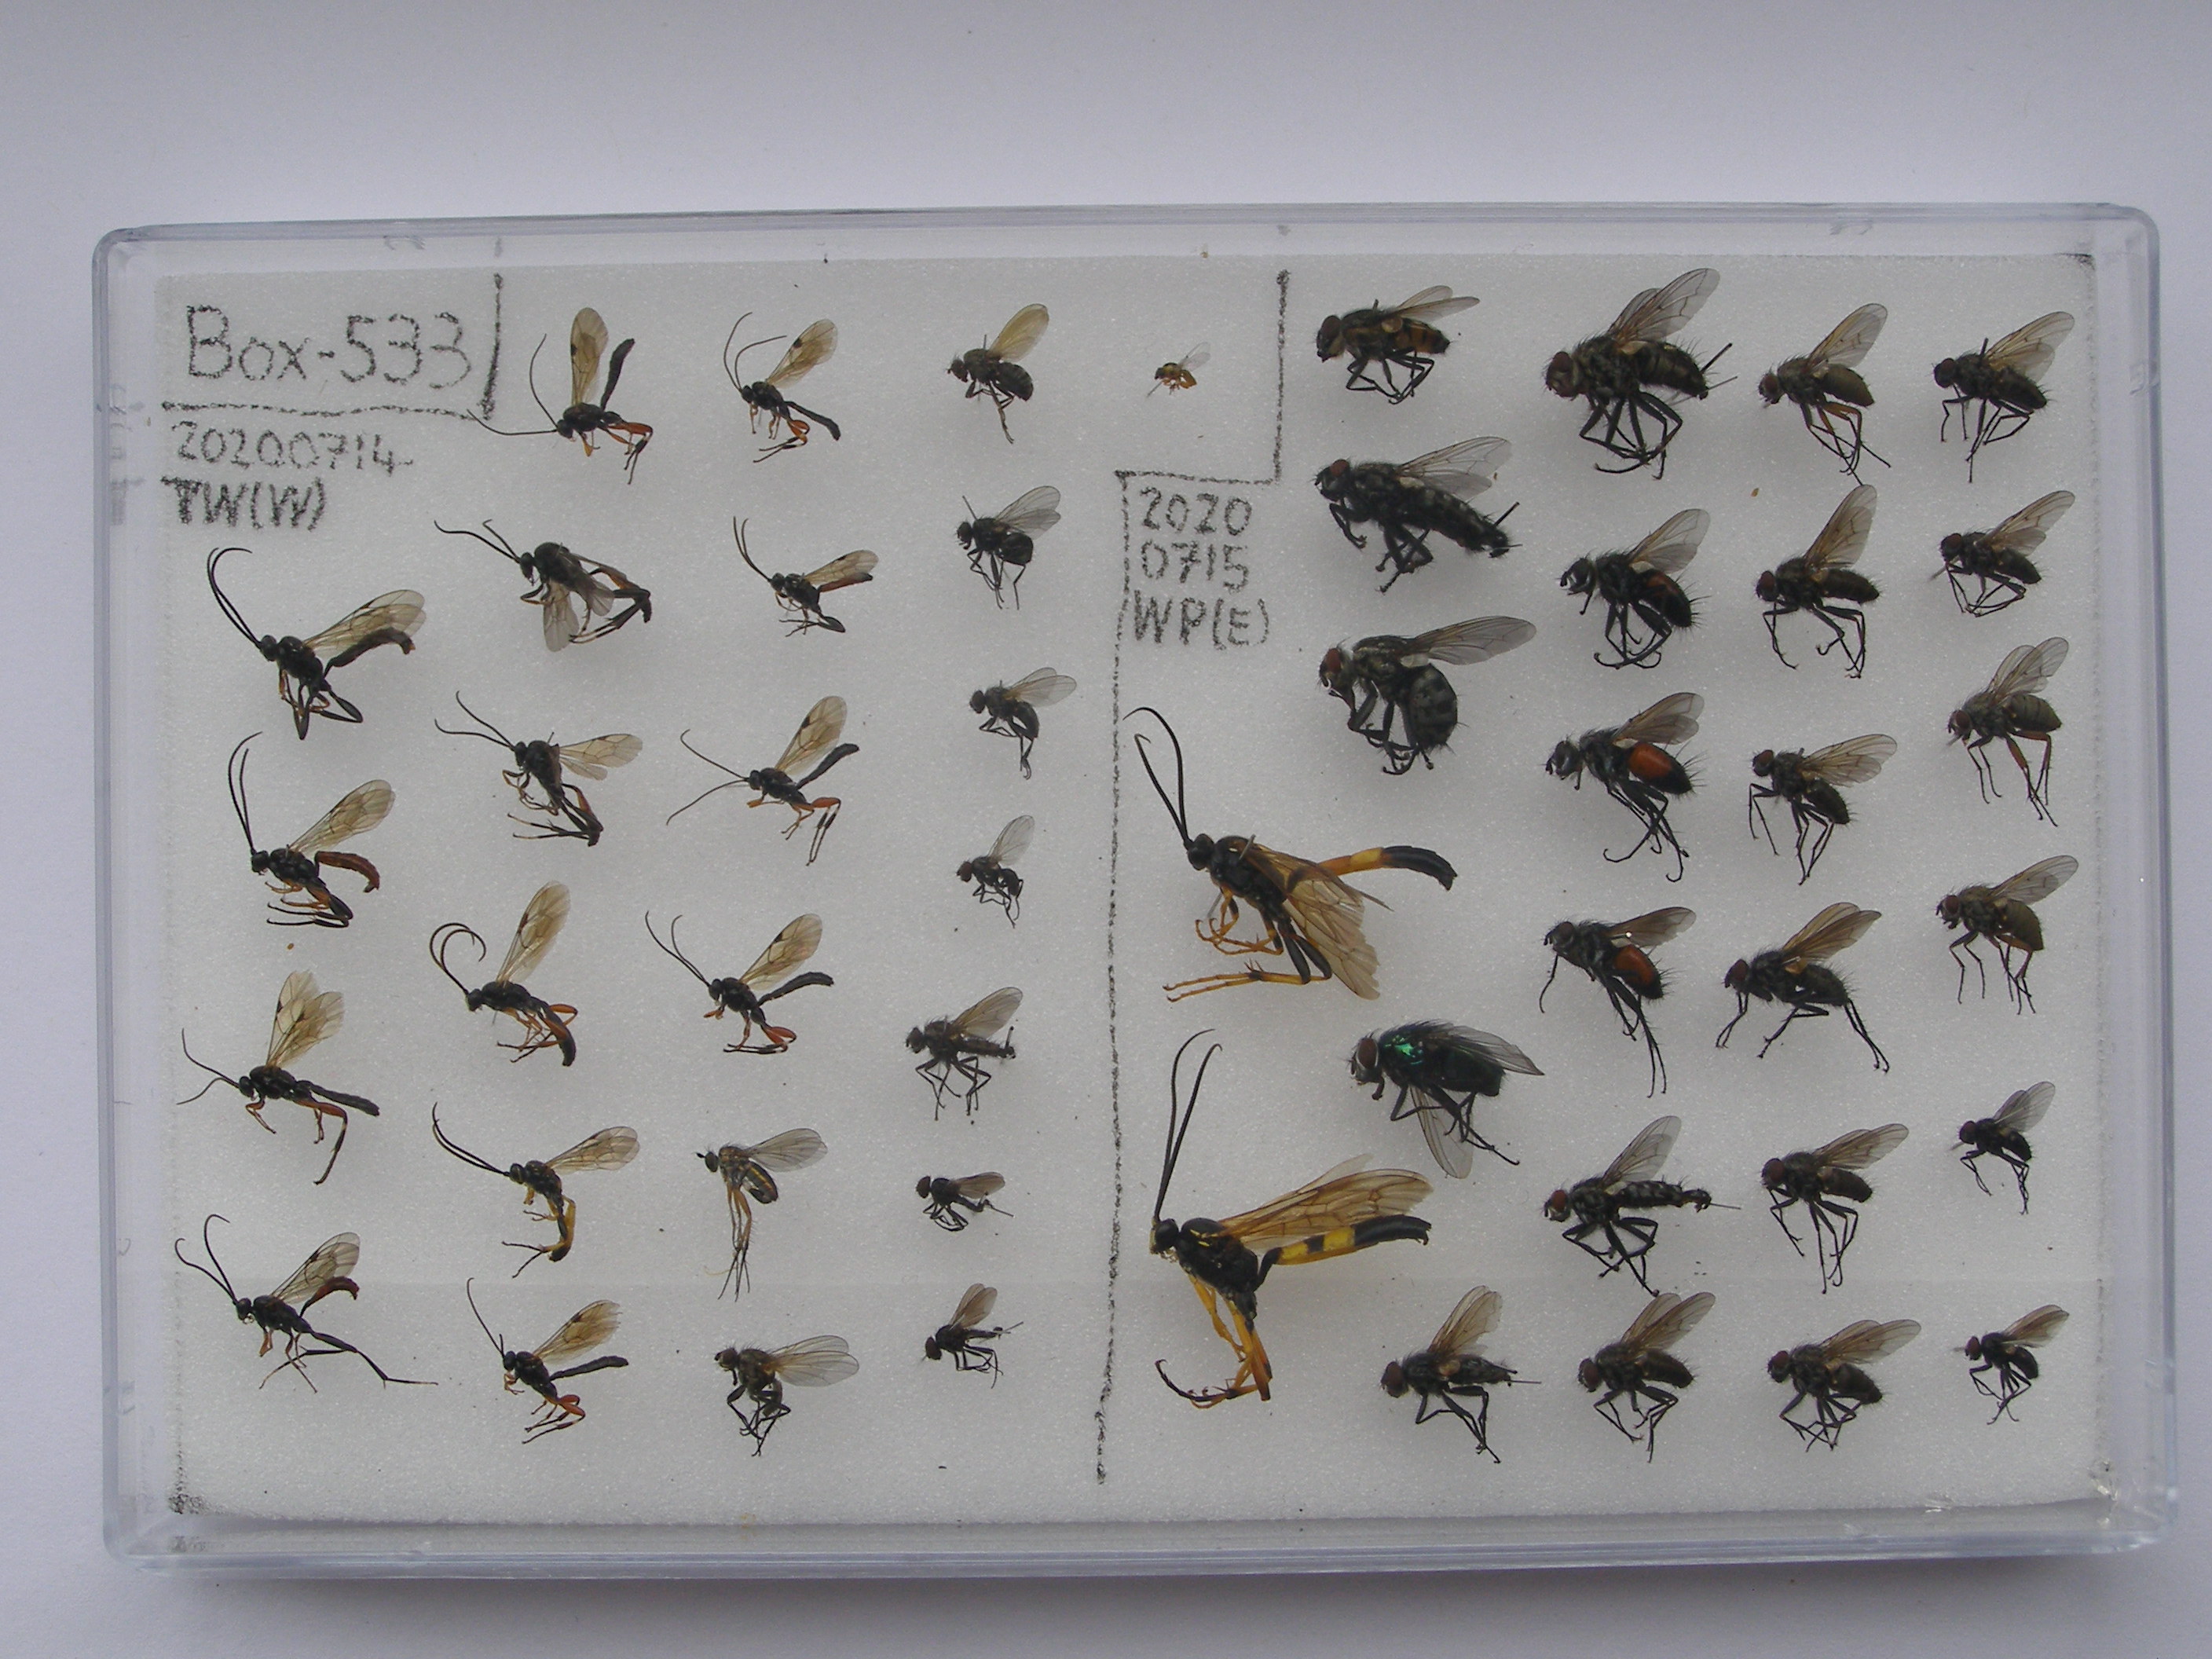 Box-533
20200714
TW(W)
2020
0715
WP(E)